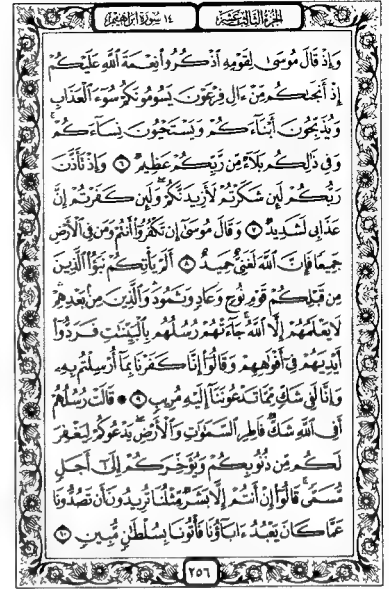 الجزء الثالث عشر ١٤ سورة ابراهيم
وَإِذْ قَالَ مُوسَىٰ لِقَوْمِهِ ٱذْكُرُوا۟ نِعْمَةَ ٱللَّهِ عَلَيْكُمْ
إِذْ أَنجَىٰكُم مِّنْ ءَالِ فِرْعَوْنَ يَسُومُونَكُمْ سُوٓءَ ٱلْعَذَابِ
وَيُذَبِّحُونَ أَبْنَآءَكُمْ وَيَسْتَحْيُونَ نِسَآءَكُمْ ۚ
وَفِى ذَٰلِكُم بَلَآءٌ مِّن رَّبِّكُمْ عَظِيمٌ ٦ وَإِذْ تَأَذَّنَ
رَبُّكُمْ لَئِن شَكَرْتُمْ لَأَزِيدَنَّكُمْ ۖ وَلَئِن كَفَرْتُمْ إِنَّ
عَذَابِى لَشَدِيدٌ ٧ وَقَالَ مُوسَىٰٓ إِن تَكْفُرُوٓا۟ أَنتُمْ وَمَن فِى ٱلْأَرْضِ
جَمِيعًا فَإِنَّ ٱللَّهَ لَغَنِىٌّ حَمِيدٌ ٨ أَلَمْ يَأْتِكُمْ نَبَؤُا۟ ٱلَّذِينَ
مِن قَبْلِكُمْ قَوْمِ نُوحٍ وَعَادٍ وَثَمُودَ ۛ وَٱلَّذِينَ مِنۢ بَعْدِهِمْ ۛ
لَا يَعْلَمُهُمْ إِلَّا ٱللَّهُ ۚ جَآءَتْهُمْ رُسُلُهُم بِٱلْبَيِّنَٰتِ فَرَدُّوٓا۟
أَيْدِيَهُمْ فِىٓ أَفْوَٰهِهِمْ وَقَالُوٓا۟ إِنَّا كَفَرْنَا بِمَآ أُرْسِلْتُم بِهِ
وَإِنَّا لَفِى شَكٍّ مِّمَّا تَدْعُونَنَآ إِلَيْهِ مُرِيبٍ ٩ ۞ قَالَتْ رُسُلُهُمْ
أَفِى ٱللَّهِ شَكٌّ فَاطِرِ ٱلسَّمَٰوَٰتِ وَٱلْأَرْضِ ۖ يَدْعُوكُمْ لِيَغْفِرَ
لَكُم مِّن ذُنُوبِكُمْ وَيُؤَخِّرَكُمْ إِلَىٰٓ أَجَلٍ
مُّسَمًّى ۚ قَالُوٓا۟ إِنْ أَنتُمْ إِلَّا بَشَرٌ مِّثْلُنَا تُرِيدُونَ أَن تَصُدُّونَا
عَمَّا كَانَ يَعْبُدُ ءَابَآؤُنَا فَأْتُونَا بِسُلْطَٰنٍ مُّبِينٍ ١٠
٢٥٦